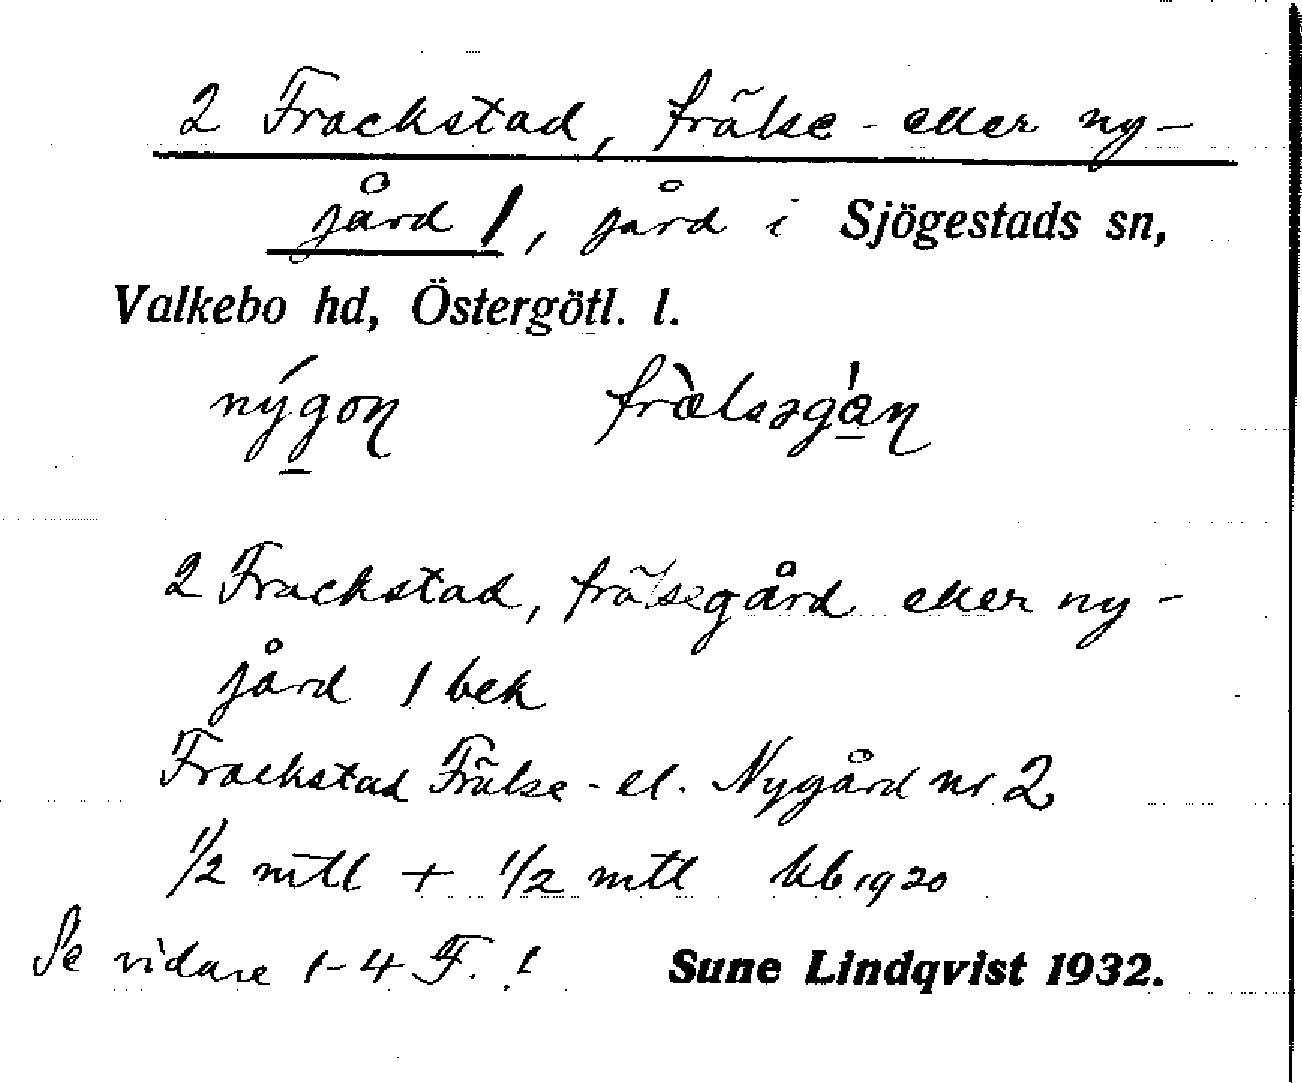 2 Frackstad, frälse- eller ny-
gård 1, gård i Sjögestads sn,
Valkebo hd, Östergötl. l.
nýgon frælsəgán
2 Frackstad, frälsegård eller ny-
gård 1 bek
Frackstad Frälse- el. Nygård nr 2
1/2 mtl + 1/2 mtl kb 1920
Se vidare 1-4 F. !
Sune Lindqvist 1932.